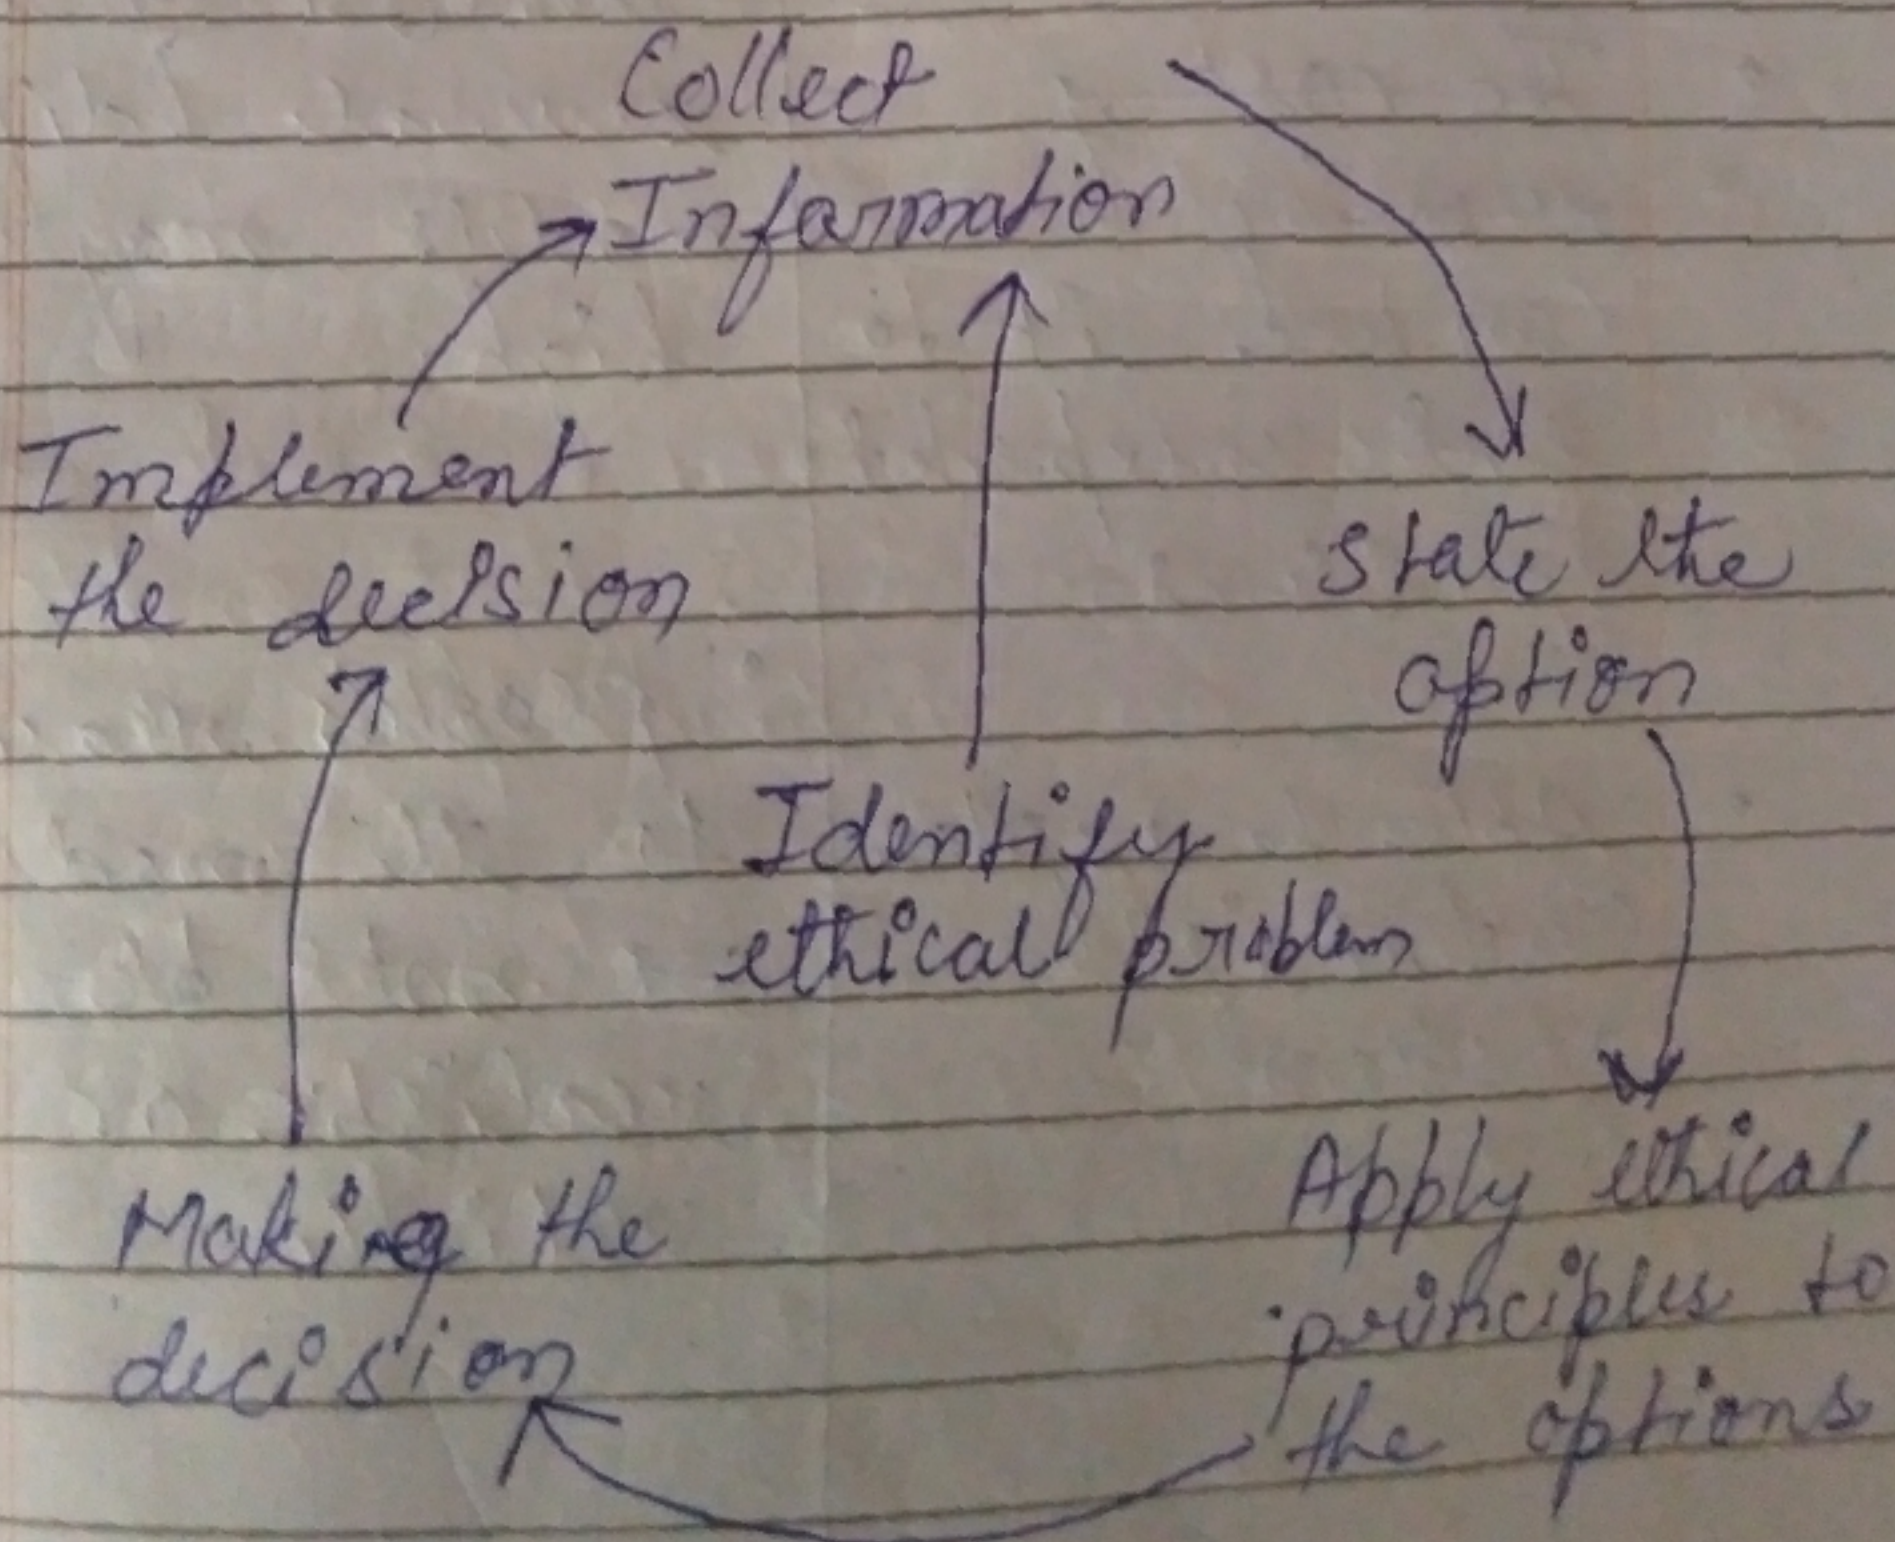 Collect
Information
Implement
the decision
State the
option
Identify
ethical problem
Making the
decision
Apply ethical
principles to
the options